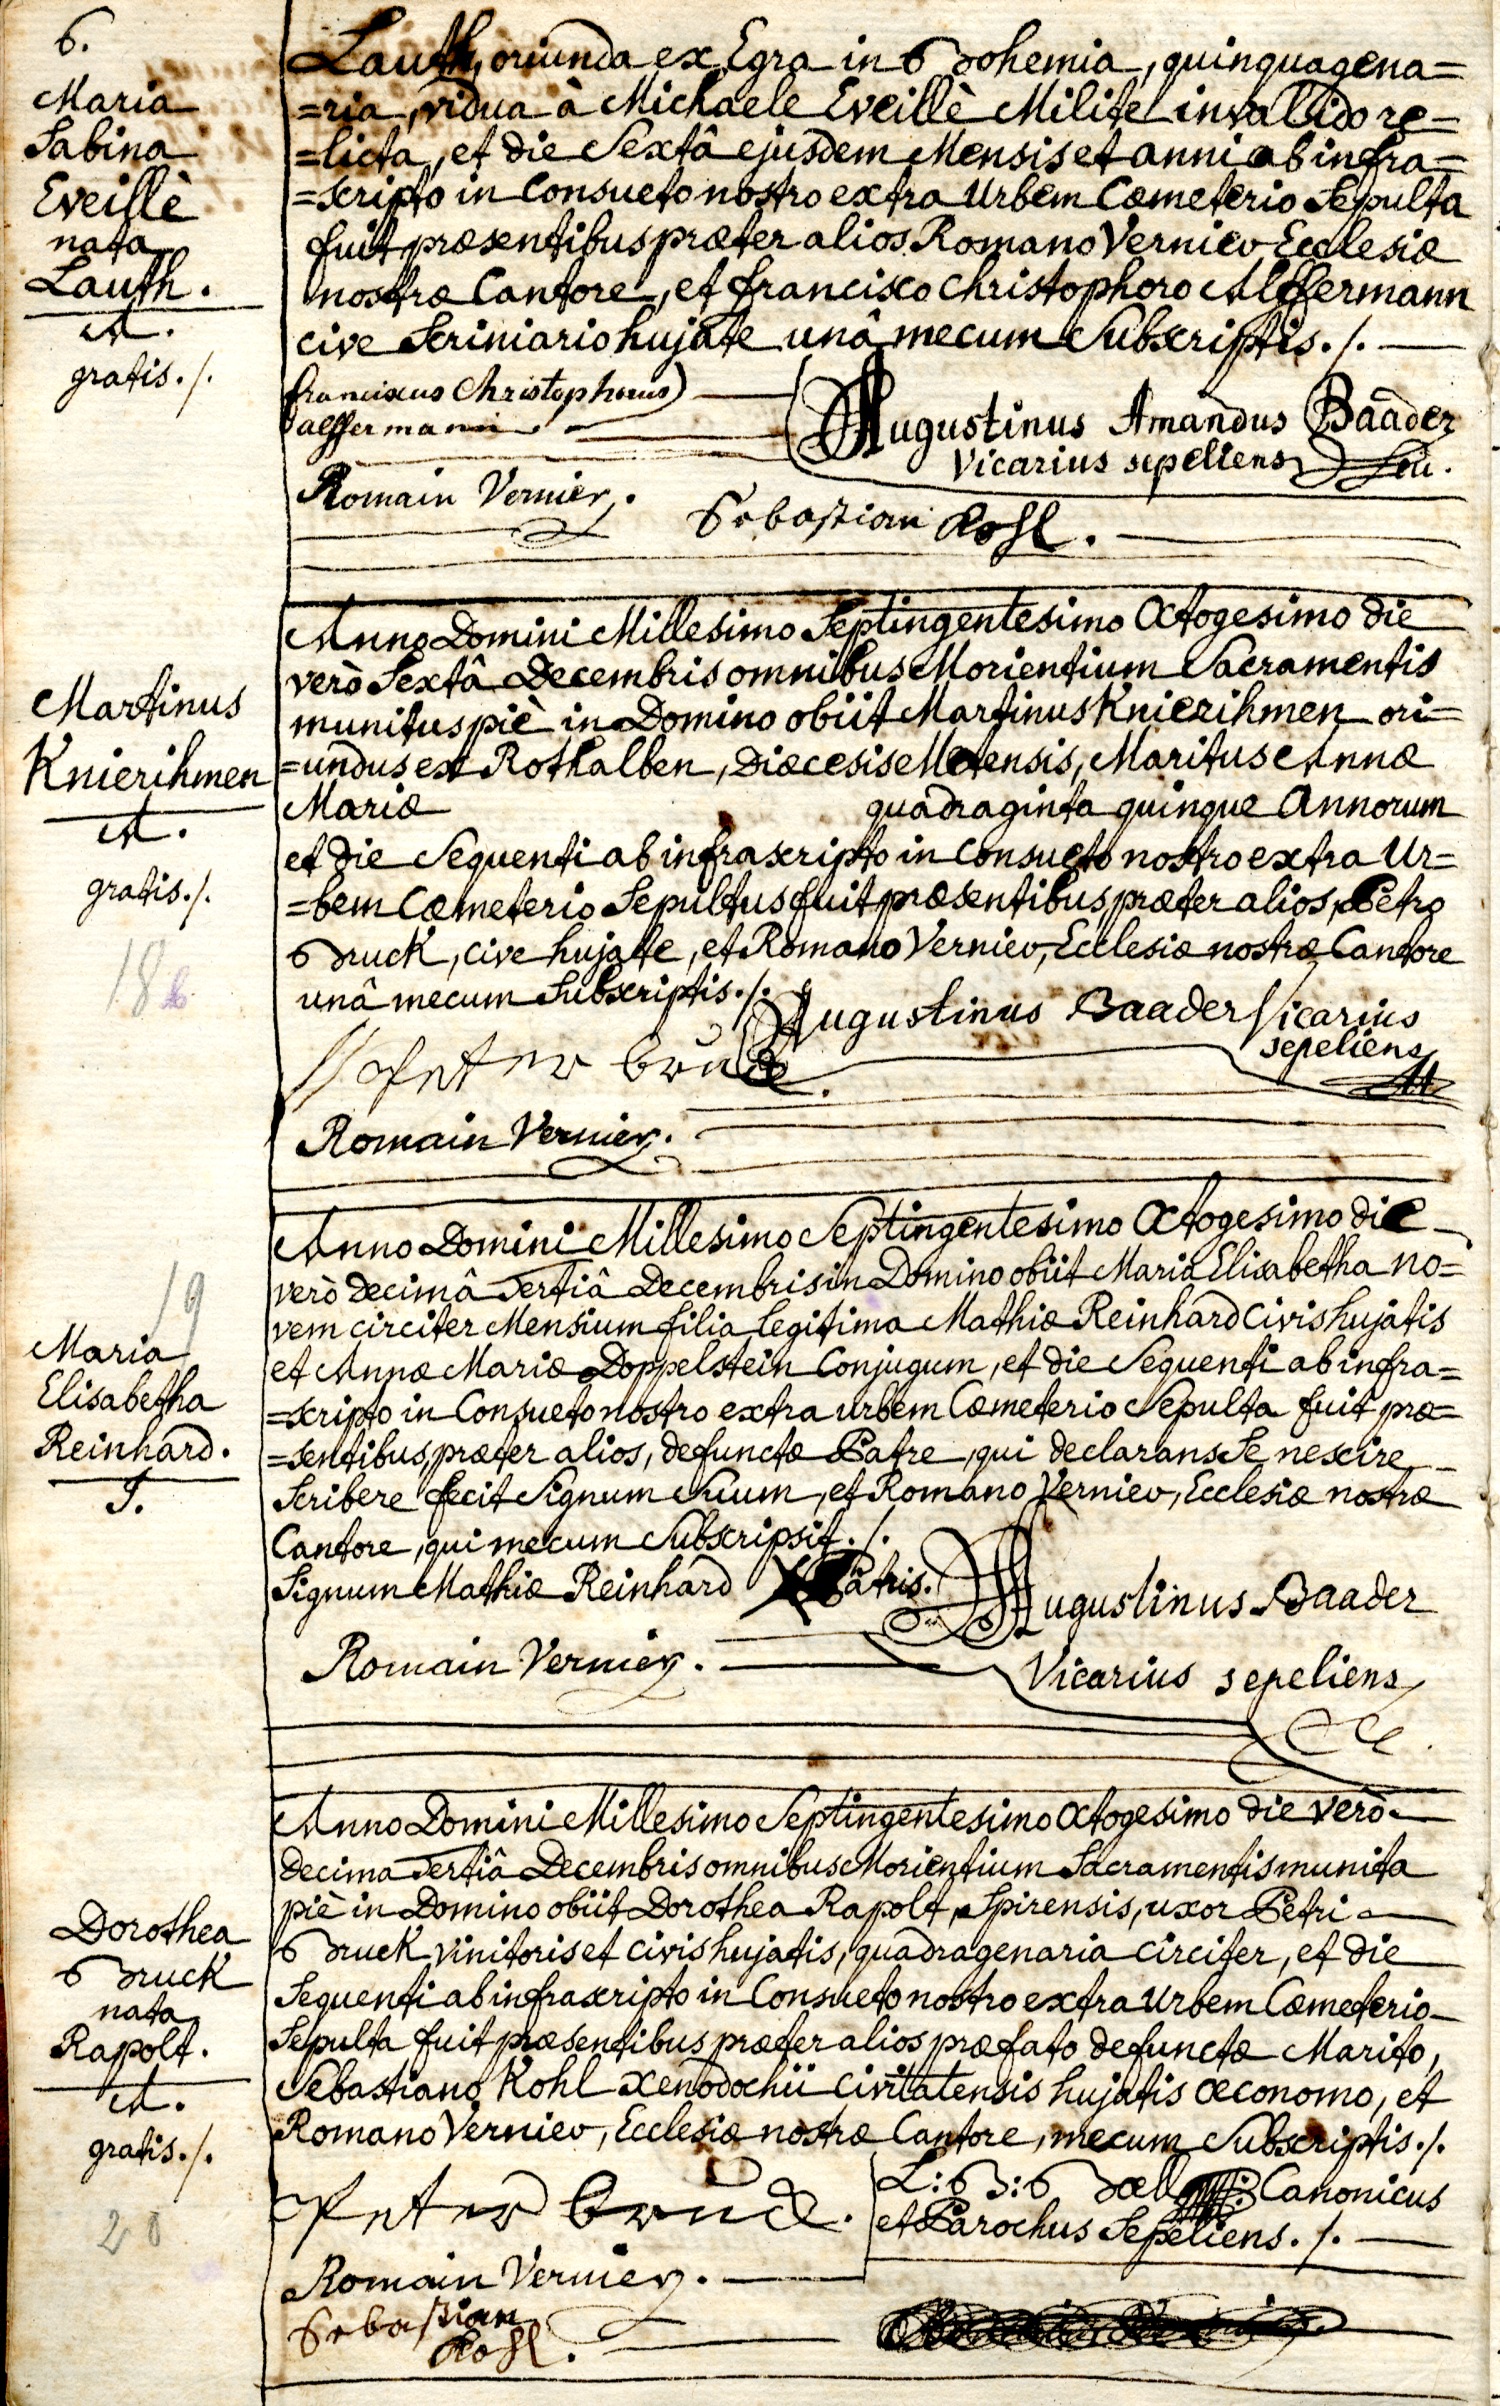 6.
Maria
Sabina
Eveillè
nata
Lauth.
A.
gratis./.
Lauth, oriunda ex Egra in Bohemia, quinquagena=
=ria, vidua à Michaele Eveillè Milite invalido re=
=licta, et die Sextâ ejusdem Mensis et anni ab infra=
=scripto in Consueto nostro extra Urbem Cœmeterio Sepulta
fuit præsentibus præter alios Romano Vernier Ecclesiæ
nostræ Cantore, et francisco Christophoro Alffermann
cive Scriniario hujate unâ mecum Subscriptis./.
franciscus Christophorus
alffermann
Augustinus Amandus Baader
Vicarius sepeliens
Romain Vernier.
Sebastian Kohl.
Martinus
Knierihmen
A.
gratis./.
18
Anno Domini Millesimo Septingentesimo Octogesimo die
verò Sextâ Decembris omnibus Morientium Sacramentis
munitus piè in Domino obiit Martinus Knierihmen ori=
=undus ex Rothalben, Diæcesis Metensis, Maritus Annæ
Mariæ quadraginta quinque Annorum
et die Sequenti ab infrascripto in Consueto nostro extra Ur=
=bem Cœmeterio Sepultus fuit præsentibus, præter alios, Petro
Bruck, cive hujate, et Romano Vernier, Ecclesiæ nostræ Cantore
unâ mecum Subscriptis./.
Augustinus Baader Vicarius
sepeliens
Peter bruck.
Romain Vernier.
19
Maria
Elisabetha
Reinhard.
I.
Anno Domini Millesimo Septingentesimo Octogesimo die
verò decimâ Tertiâ Decembris in Domino obiit Maria Elisabetha no=
vem circiter Mensium filia legitima Mathiæ Reinhard Civis hujatis
et Annæ Mariæ Doppelstein Conjugum, et die Sequenti ab infra=
=scripto in Consueto nostro extra urbem Cœmeterio Sepulta fuit præ=
=sentibus, præter alios, defunctæ Patre, qui declarans Se nescire
Scribere fecit Signum Suum, et Romano Vernier, Ecclesiæ nostræ
Cantore, qui mecum Subscripsit./.
Signum Mathiæ Reinhard X Patris.
Augustinus Baader
Romain Vernier.
Vicarius sepeliens
Dorothea
Bruck
nata
Rapolt.
A.
gratis./.
20
Anno Domini Millesimo Septingentesimo Octogesimo die verò
decima Tertiâ Decembris omnibus Morientium Sacramentis munita
piè in Domino obiit Dorothea Rapolt, Spirensis, uxor Petri
Bruck vinitoris et civis hujatis, quadragenaria circiter, et die
Sequenti ab infrascripto in Consueto nostro extra Urbem Cœmeterio
Sepulta fuit præsentibus præter alios præfato defunctæ Marito,
Sebastiano Kohl Xenodochii Civitatensis hujatis œconomo, et
Romano Vernier, Ecclesiæ nostræ Cantore, mecum Subscriptis./.
Peter bruck.
L: B: Bœll Canonicus
et Parochus Sepeliens./.
Romain Vernier.
Sebastian
Kohl.